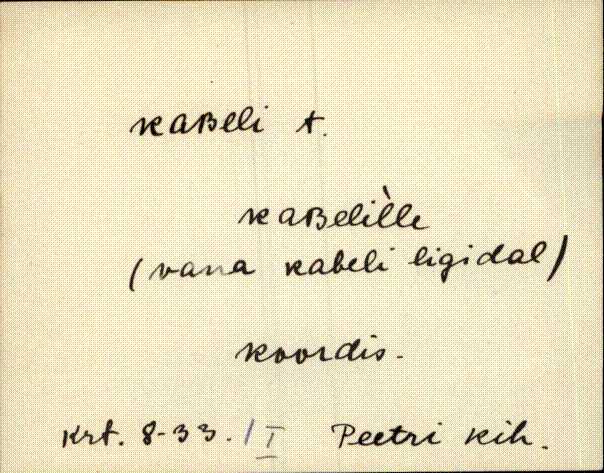 kaʙeli t.
kaʙelìlle
(vana kabeli ligidal)
koordis.
krt. 8-33. / I Peetri kih.